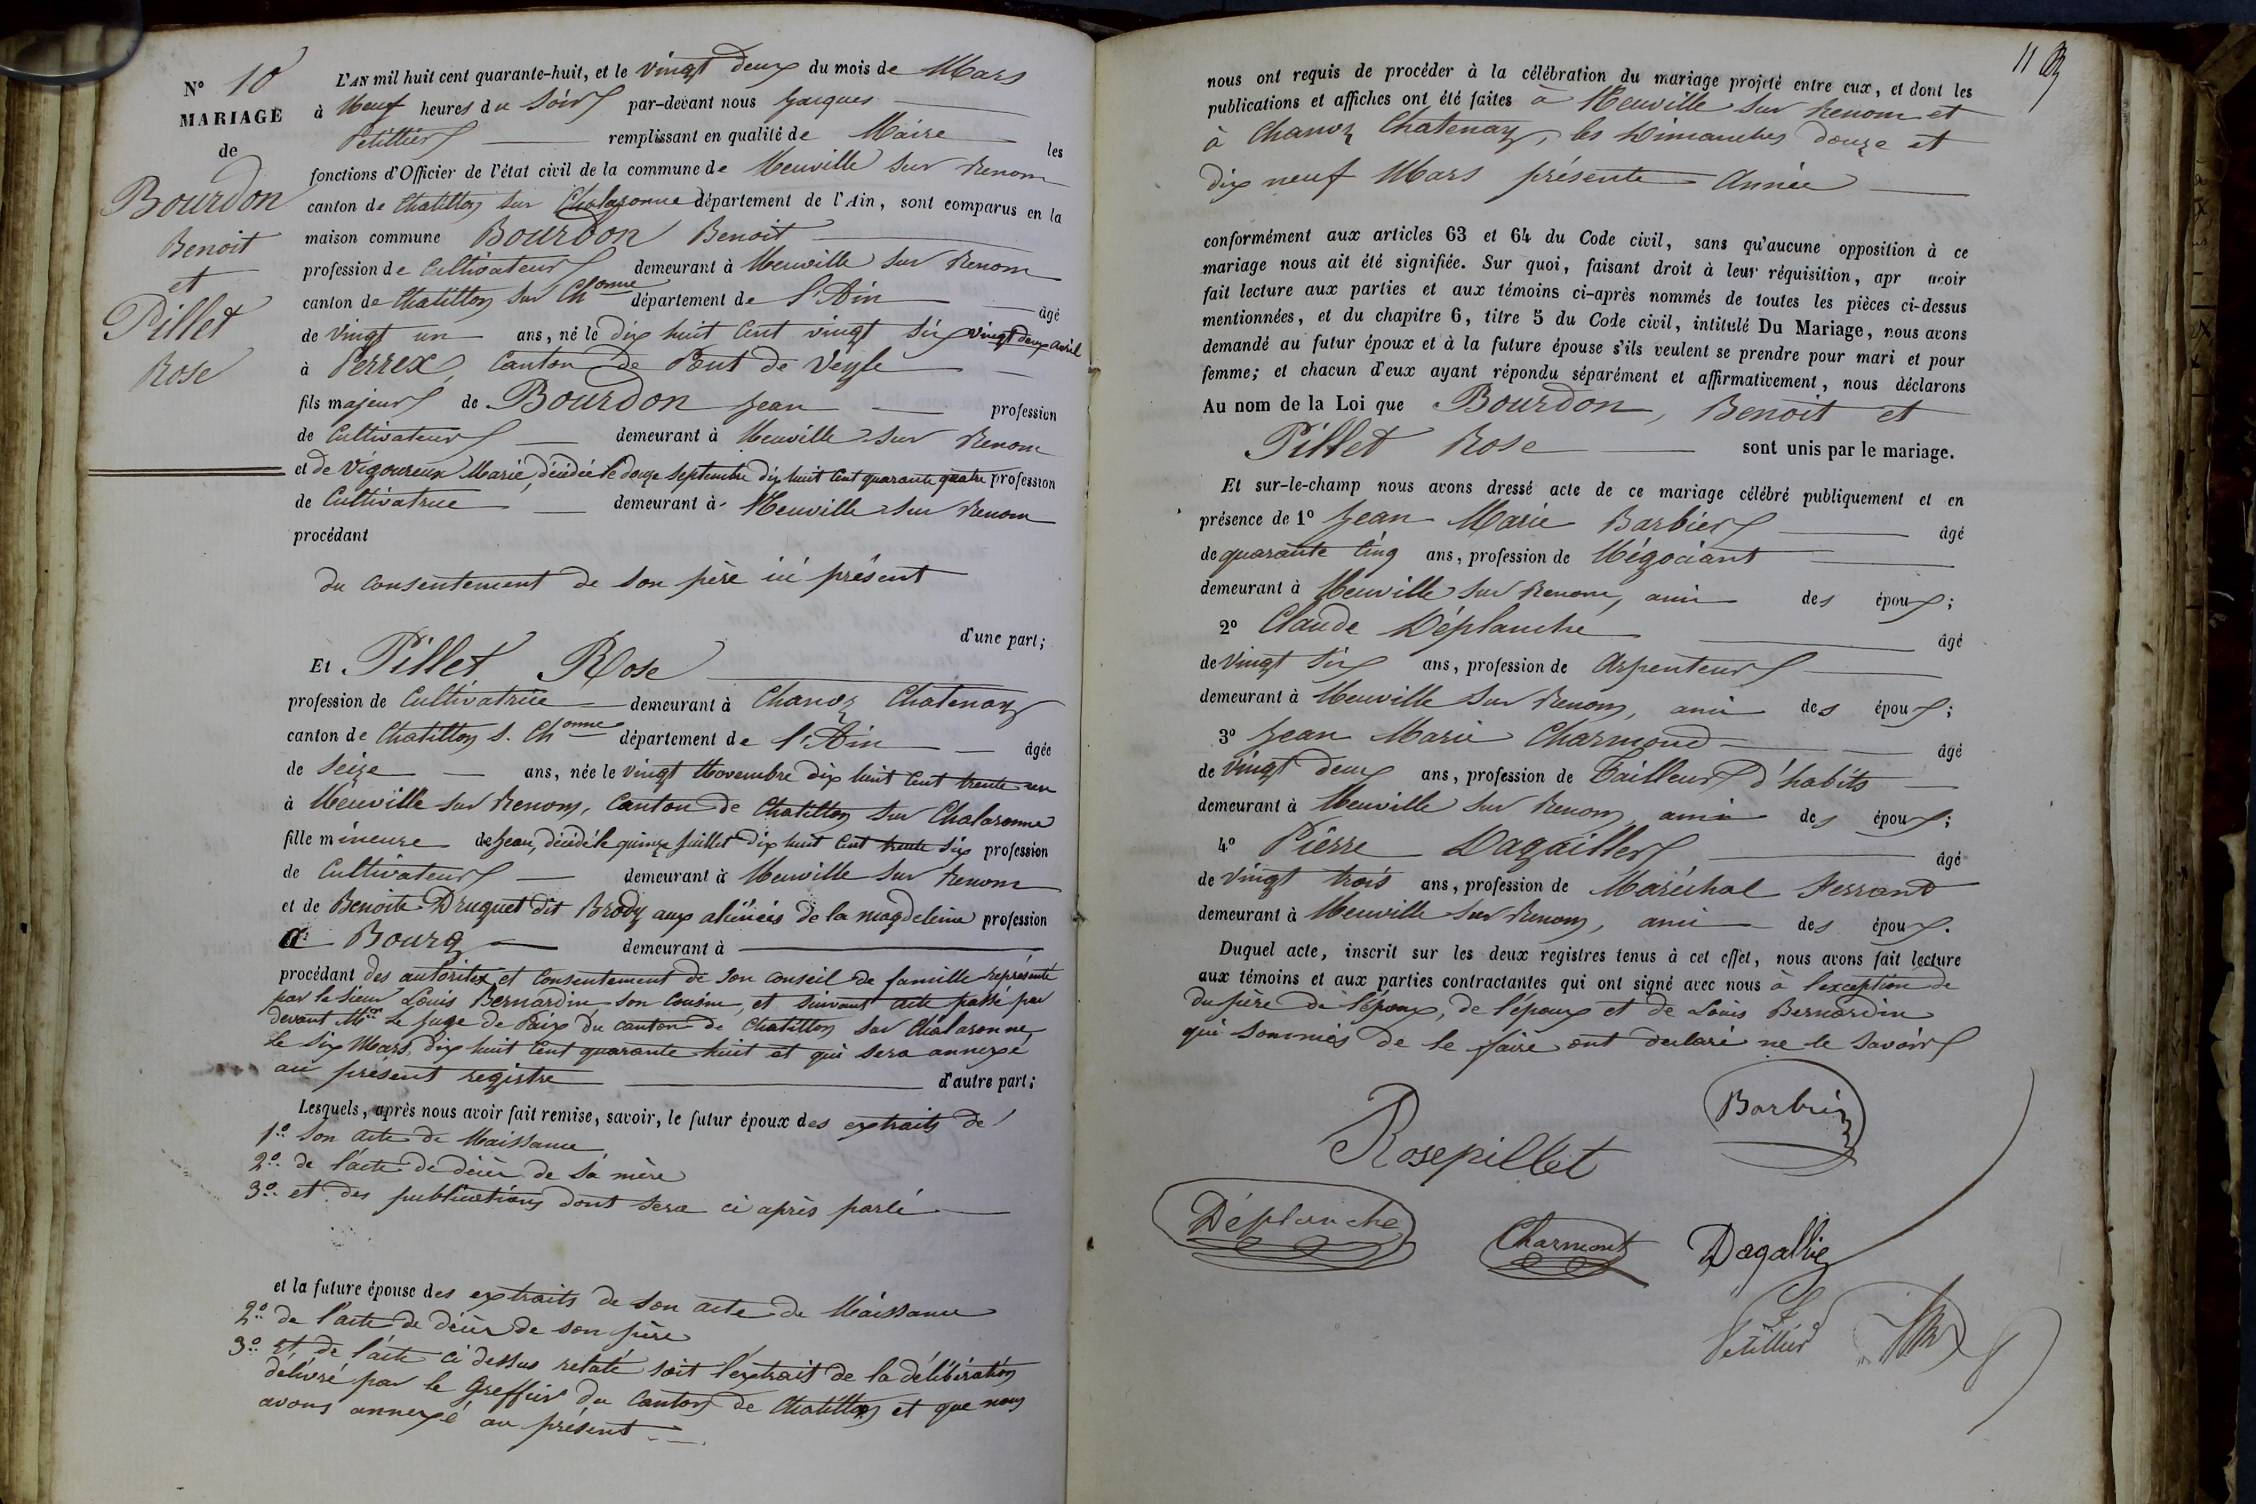 N° 10
MARIAGE
de
Bourdon
Benoit
et
Pillet
Rose
L'AN mil huit cent quarante-huit, et le vingt deux du mois de Mars
à Neuf heures du Soir par-devant nous Jacques
Petillier remplissant en qualité de Maire les
fonctions d'Officier de l'état civil de la commune de Neuville sur Renom
canton de Chatillon sur Chalaronne département de l'Ain, sont comparus en la
maison commune Bourdon Benoit
profession de Cultivateur demeurant à Neuville sur Renom
canton de Chatillon sur Chonne département de l'Ain âgé
de vingt un ans, né le dix huit Cent vingt six vingt deux avril
à Perrex, Canton de Pont de Veyle
fils majeur de Bourdon Jean profession
de Cultivateur demeurant à Neuville sur Renom
et de Vigoureux Marie, décédée le douze septembre dix huit Cent quarante quatre profession
de Cultivatrice demeurant à Neuville sur Renom
procédant
du consentement de son père ici présent
d'une part;
Et Pillet Rose
profession de Cultivatrice demeurant à Chanoz Chatenay
canton de Chatillon s. Chonne département de l'Ain âgée
de Seize ans, née le vingt Novembre dix huit Cent trente un
à Neuville sur Renom, Canton de Chatillon sur Chalaronne
fille mineure de Jean, décédé le quinze juillet dix huit Cent trente six profession
de Cultivateur demeurant à Neuville sur Renom
et de Benoite Druguet dit Brody aux aliénées de la magdeleine profession
à Bourg demeurant à
procédant des autorités et Consentement de son conseil de famille représenté
par le sieur Louis Bernardin son Cousin, et suivant acte passé par
devant Mr. le Juge de Paix du canton de Chatillon sur Chalaronne
le six Mars dix huit Cent quarante huit et qui sera annexé
au présent registre d'autre part;
Lesquels, après nous avoir fait remise, savoir, le futur époux des extraits de
1° Son acte de Naissance
2° de l'acte de décès de sa mère
3° et des publications dont sera ci après parlé
et la future épouse des extraits de son acte de Naissance
2° de l'acte de décès de son père
3° et de l'acte ci dessus relaté soit l'extrait de la délibération
délivré par le Greffier du Canton de Chatillon et que nous
avons annexé au présent
11
nous ont requis de procéder à la célébration du mariage projeté entre eux, et dont les
publications et affiches ont été faites à Neuville sur Renom et
à Chanoz Chatenay, les Dimanches douze et
dix neuf Mars présente Année
conformément aux articles 63 et 64 du Code civil, sans qu'aucune opposition à ce
mariage nous ait été signifiée. Sur quoi, faisant droit à leur réquisition, apr avoir
fait lecture aux parties et aux témoins ci-après nommés de toutes les pièces ci-dessus
mentionnées, et du chapitre 6, titre 5 du Code civil, intitulé Du Mariage, nous avons
demandé au futur époux et à la future épouse s'ils veulent se prendre pour mari et pour
femme; et chacun d'eux ayant répondu séparément et affirmativement, nous déclarons
Au nom de la Loi que Bourdon, Benoit et
Pillet Rose sont unis par le mariage.
Et sur-le-champ nous avons dressé acte de ce mariage célébré publiquement et en
présence de 1° Jean Marie Barbier âgé
de quarante Cinq ans, profession de Négociant
demeurant à Neuville sur Renom, ami des époux;
2° Claude Déplanche âgé
de vingt six ans, profession de Arpenteur
demeurant à Neuville sur Renom, ami des époux;
3° Jean Marie Charmond âgé
de vingt deux ans, profession de Tailleur d'habits
demeurant à Neuville sur Renom, ami des époux;
4° Pierre Dagaillier âgé
de vingt trois ans, profession de Maréchal Ferrant
demeurant à Neuville sur Renom, ami des époux.
Duquel acte, inscrit sur les deux registres tenus à cet effet, nous avons fait lecture
aux témoins et aux parties contractantes qui ont signé avec nous à l'exception de
du père de l'époux, de l'époux et de Louis Bernardin
qui sommés de le faire ont declaré ne le savoir
Barbier
Rosepillet
Déplanche
Charmont
Dagallie
Petillier